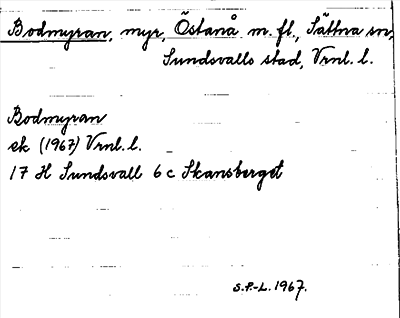 Bodmyran, myr, Östanå m. fl., Sättna sn,
Sundsvalls stad, Vrnl. l.
Bodmyran
ek (1967) Vrnl. l.
17 H Sundsvall 6 c Skansberget
S.P.-L. 1967.